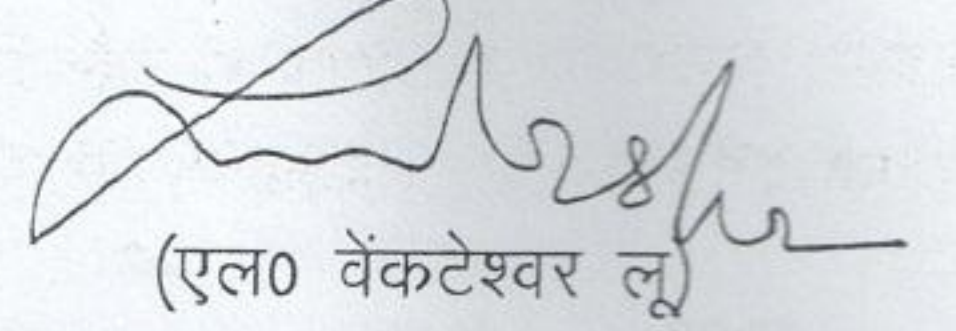 (एल0 वेंकटेश्वर लू)